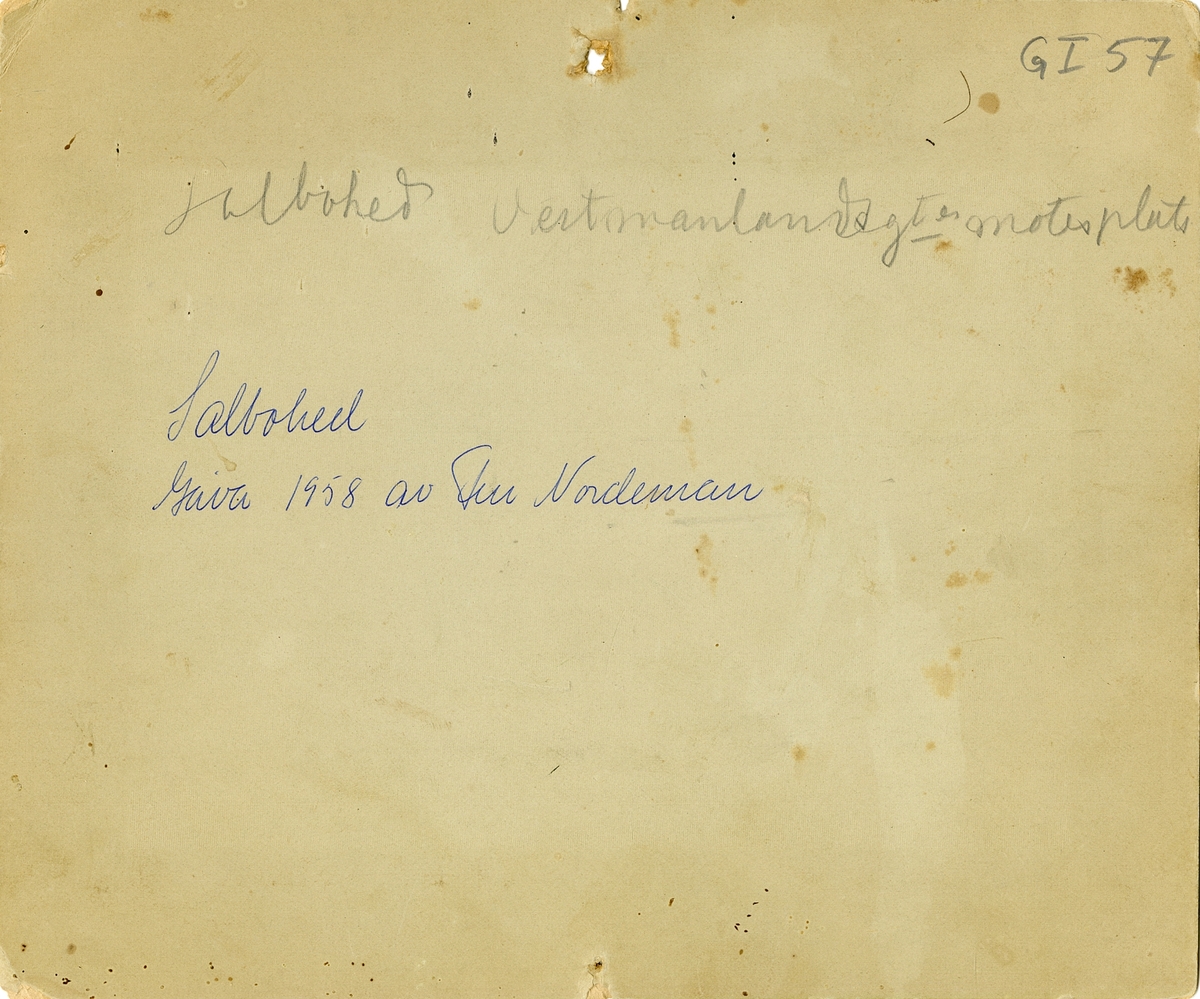 GI 57
Salbohed Vestmanlands gtes motesplats
Salbohed
Gåva 1958 av Nordeman